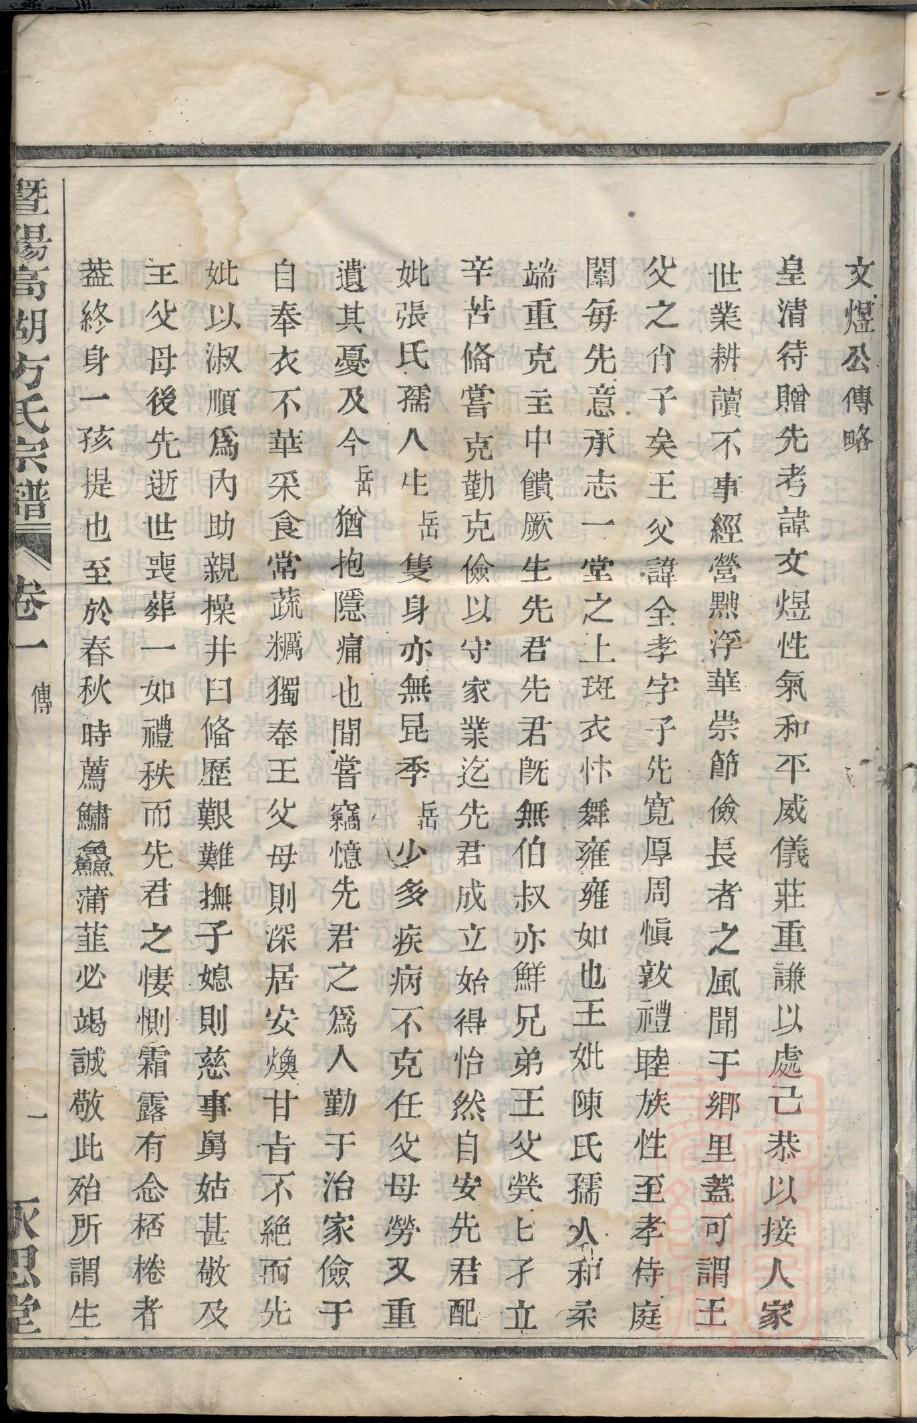 文煜公傳略
皇清待贈先考諱文煜性氣和平威儀莊重謙以處己恭以接人家
世業耕讀不事經營黜浮華崇節儉長者之風聞于鄉里蓋可謂王
父之肖子矣王父諱全孝字子先寬厚周慎敦禮睦族性至孝侍庭
闈每先意承志一堂之上斑衣忭舞雍雍如也王妣陳氏孺人和柔
端重克主中饋厥生先君先君旣無伯叔亦鮮兄弟王父煢匕孑立
辛苦俻嘗克勤克儉以守家業迄先君成立始得怡然自安先君配
妣張氏孺人生岳隻身亦無昆季岳少多疾病不克任父母勞又重
遺其憂及今岳猶抱隱痛也間嘗竊憶先君之爲人勤于治家儉于
自奉衣不華采食常蔬糲獨奉王父母則深居安燠甘旨不絕而先
妣以淑順爲內助親操井臼俻歷艱難撫子媳則慈事舅姑甚敬及
王父母後先逝世喪葬一如禮秩而先君之悽惻霜露有念桮棬者
葢終身一孩提也至於春秋時薦鱐鱻蒲韮必竭誠敬此殆所謂生
暨陽高湖方氏宗譜 卷一 傳 一 永思堂